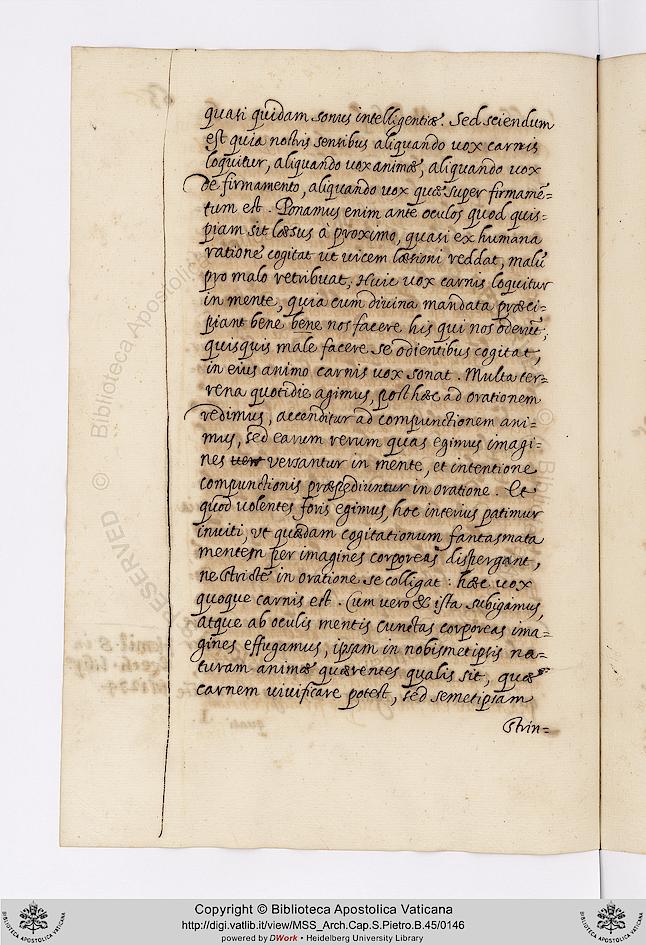 quasi quidam sonus intelligentiæ. Sed sciendum
est quia nostris sensibus aliquando vox carnis
loquitur, aliquando vox animæ, aliquando vox
de firmamento, aliquando vox quæ super firmamē=
tum est. Ponamus enim ante oculos quod quis=
piam sit læsus à proximo, quasi ex humana
ratione cogitat ut vicem læsioni reddat, malū
pro malo retribuat, Huic vox carnis loquitur
in mente, quia cum divina mandata præci=
piant bene bene nos facere his qui nos oderūt,
quisquis male facere se odientibus cogitat,
in eius animo carnis vox sonat. Multa ter=
rena quotidie agimus, post hæc ad orationem
redimus, accenditur ad compunctionem ani=
mus, sed earum rerum quas egimus imagi=
nes versantur in mente, et intentione
compunctionis præpediuntur in oratione. Et
quod volentes foris egimus, hoc interius patimur
inviti, ut quædam cogitationum fantasmata
mentem per imagines corporeas dispergant,
ne stricte in oratione se colligat: hæc vox
quoque carnis est. Cum vero & ista subigamus,
atque ab oculis mentis cunctas corporeas ima=
gines effugamus, ipsam in nobismetipsis na=
turam animæ quærentes qualis sit, quæ
carnem vivificare potest, sed semetipsam
strin=
Copyright © Biblioteca Apostolica Vaticana
http://digi.vatlib.it/view/MSS_Arch.Cap.S.Pietro.B.45/0146
powered by DWork • Heidelberg University Library